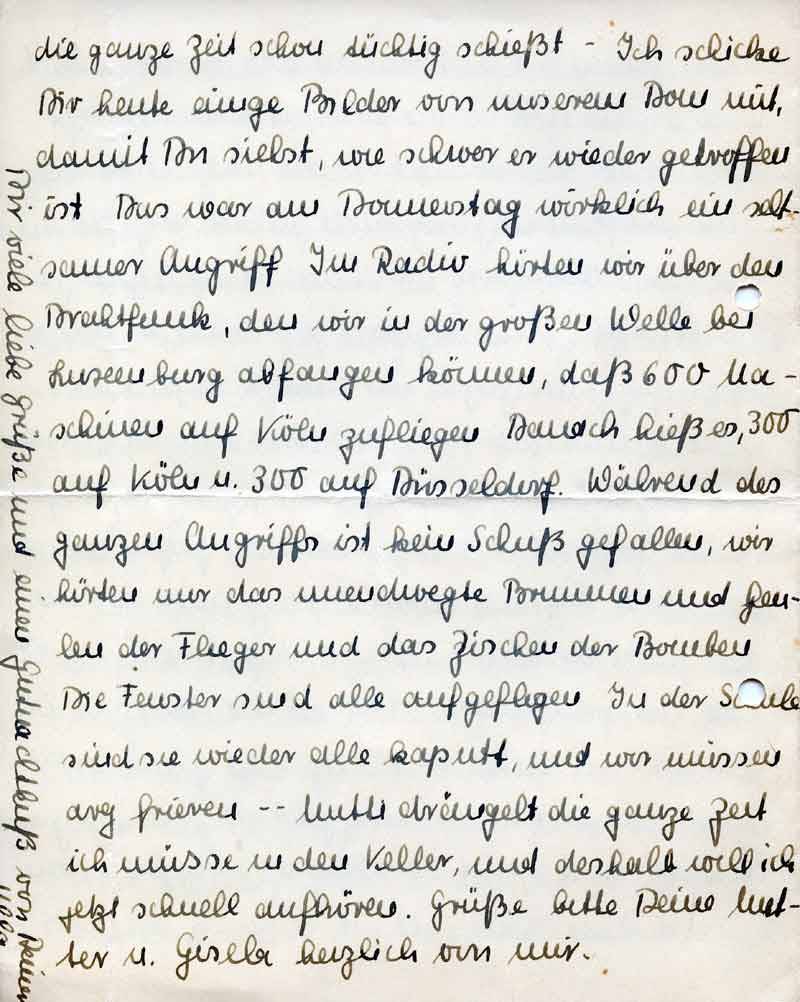 die ganze Zeit schon tüchtig schießt - Ich schicke
Dir heute einige Bilder von unserem Dom mit,
damit Du siehst, wie schwer er wieder getroffen
ist Das war am Donnerstag wirklich ein selt-
samer Angriff Im Radio hörten wir über den
Drahtfunk, den wir in der großen Welle bei
Luxemburg abfangen können, daß 600 Ma-
schinen auf Köln zufliegen Danach hieß es, 300
auf Köln u. 300 auf Düsseldorf. Während des
ganzen Angriffs ist kein Schuß gefallen, wir
hörten nur das unendwegte Brummen und Heu-
len der Flieger und das Zischen der Bomben
Die Fenster sind alle aufgeflogen In der Schule
sind sie wieder alle kaputt, und wir müssen
arg frieren -- Mutti drängelt die ganze Zeit
ich müsse in den Keller, und deshalb will ich
jetzt schnell aufhören. Grüße bitte Deine Mut-
ter u. Gisela herzlich von mir.
Dir viele liebe Grüße und einen Gutnachtkuß von Deiner
Ulla